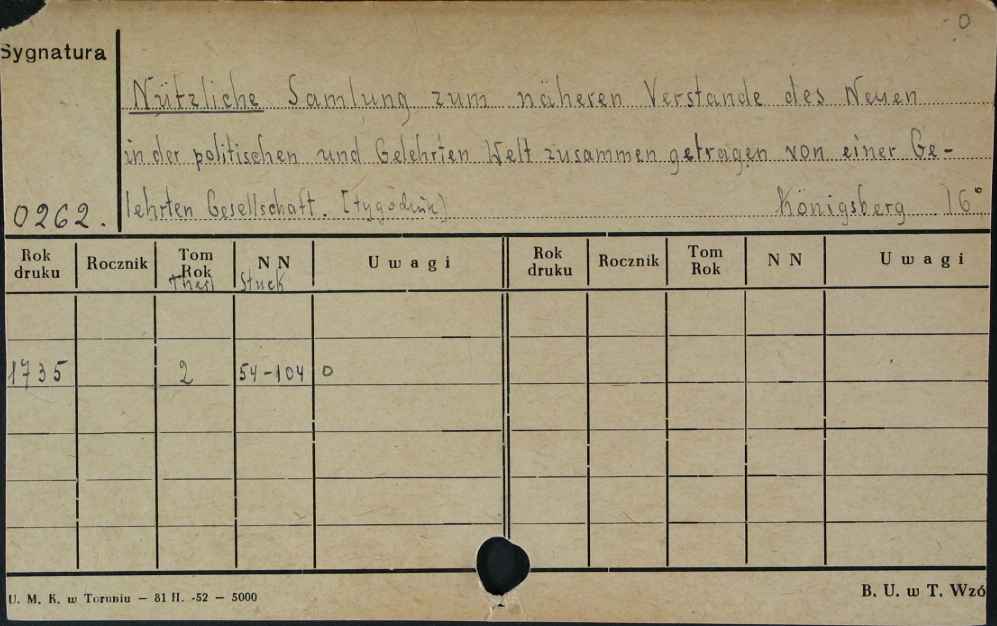 0
Sygnatura
Nützliche Samlung zum näheren Verstande des Neuen
in der politischen und Gelehrten Welt zusammen getragen von einer Ge-
lehrten Gesellschaft. [tygodnik)
Königsberg 16°
0262.
Rok druku Rocznik Tom Rok N N Uwagi Rok druku Rocznik Tom Rok N N Uwagi
Stuck
1735 2 54-104 0
U. M. K. w Toruniu — 81 II. -52 — 5000
B. U. w T. Wzó